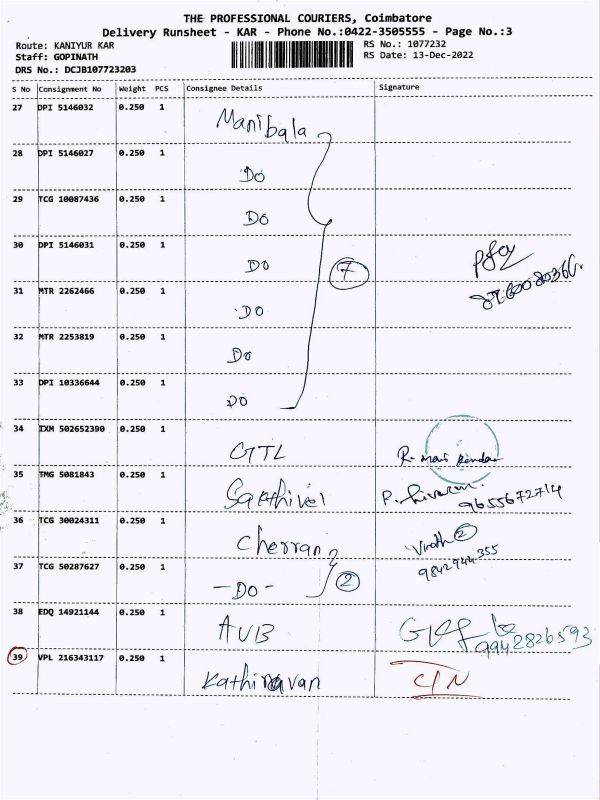 THE PROFESSIONAL COURIERS, Coimbatore
Delivery Runsheet - KAR - Phone No.:0422-3505555 - Page No.:3
Route: KANIYUR KAR
RS No.: 1077232
Staff: GOPINATH
RS Date: 13-Dec-2022
DRS No.: DCJB107723203
S No Consignment No Weight PCS Consignee Details Signature
27 DPI 5146032 0.250 1 Manibala
28 DPI 5146027 0.250 1 Do
29 TCG 10087436 0.250 1 Do
30 DPI 5146031 0.250 1 Do 7
31 MTR 2262466 0.250 1 Do
32 MTR 2253819 0.250 1 Do
33 DPI 10336644 0.250 1 Do
34 IXM 502652390 0.250 1 GTL
35 TMG 5081843 0.250 1 Sakthivel
9655672714
36 TCG 30024311 0.250 1 Cherran 2
9842944355
37 TCG 50287627 0.250 1 -Do- 2
38 EDQ 14921144 0.250 1 AUB
9942826593
39 VPL 216343117 0.250 1 Kathiravan